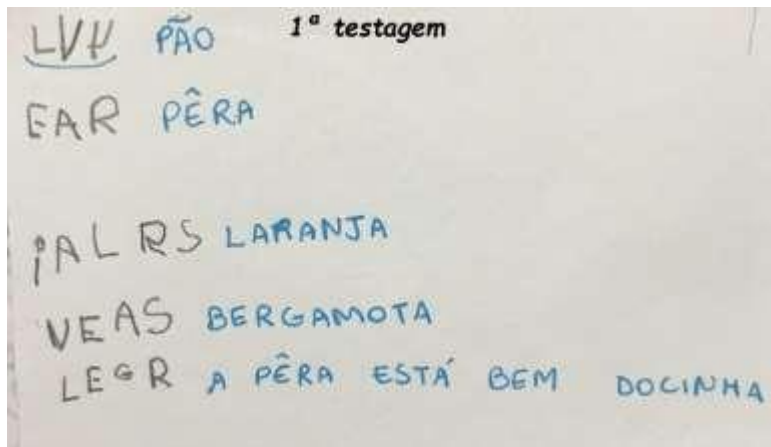 LVH PÃO 1ª testagem
EAR PÊRA
iALRS LARANJA
VEAS BERGAMOTA
LEGR A PÊRA ESTÁ BEM DOCINHA